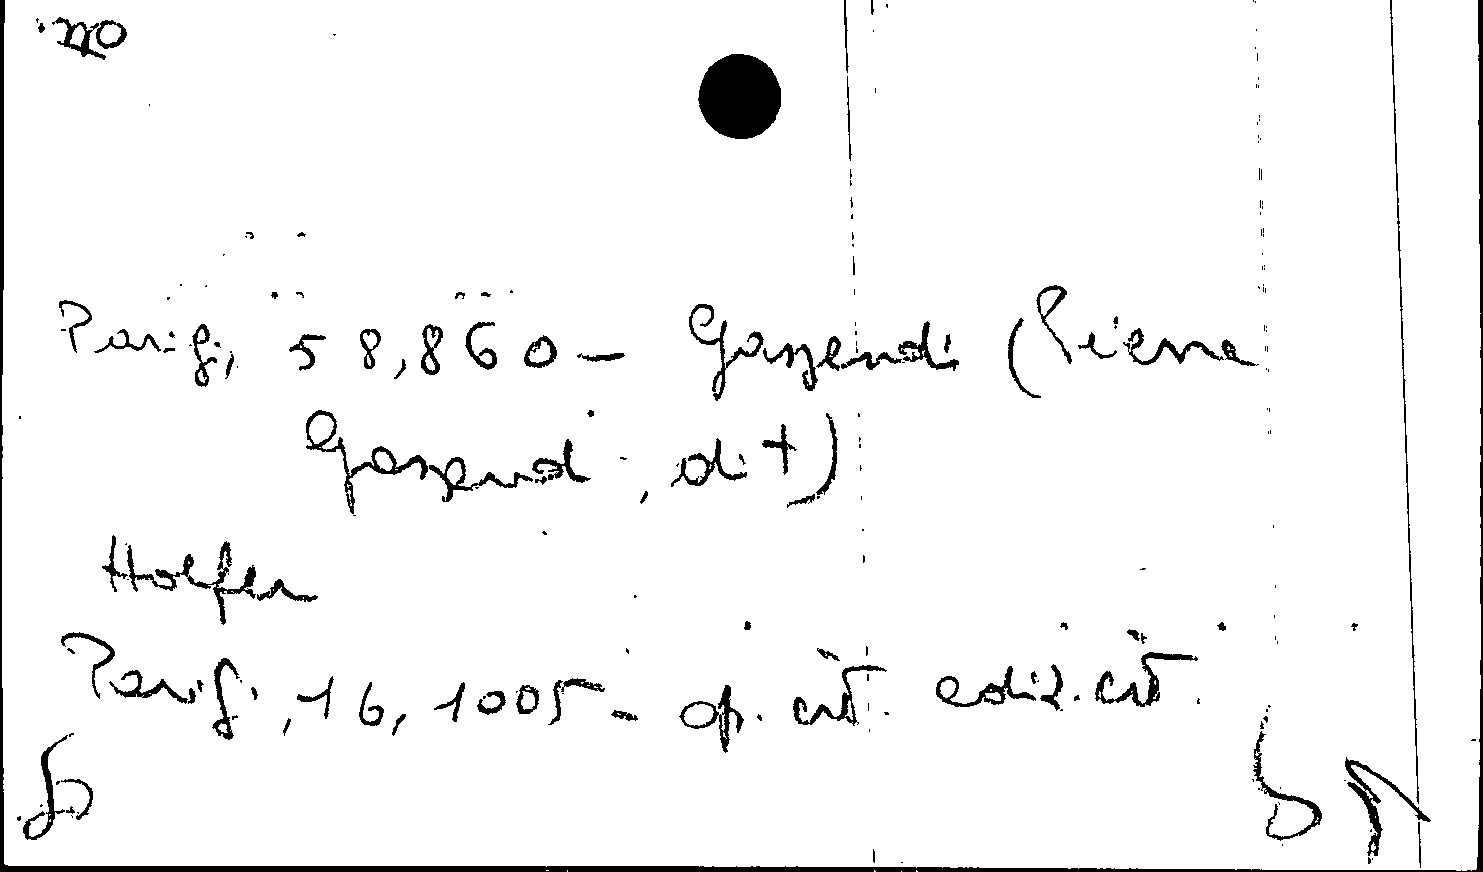 Parigi, 58,860 - Gassendi (Pierre
Gassend, dit)
Hoefer
Parigi, 16, 1005 - op. cit. ediz. cit.